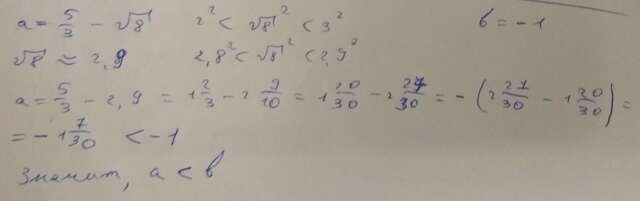 a = 5/3 - √8 2² < √8² < 3² b = -1
√8 ≈ 2,9 2,8² < √8² < 2,9²
a = 5/3 - 2,9 = 1 2/3 - 2 9/10 = 1 20/30 - 2 27/30 = -(2 27/30 - 1 20/30) =
= -1 7/30 < -1
Значит, a < b